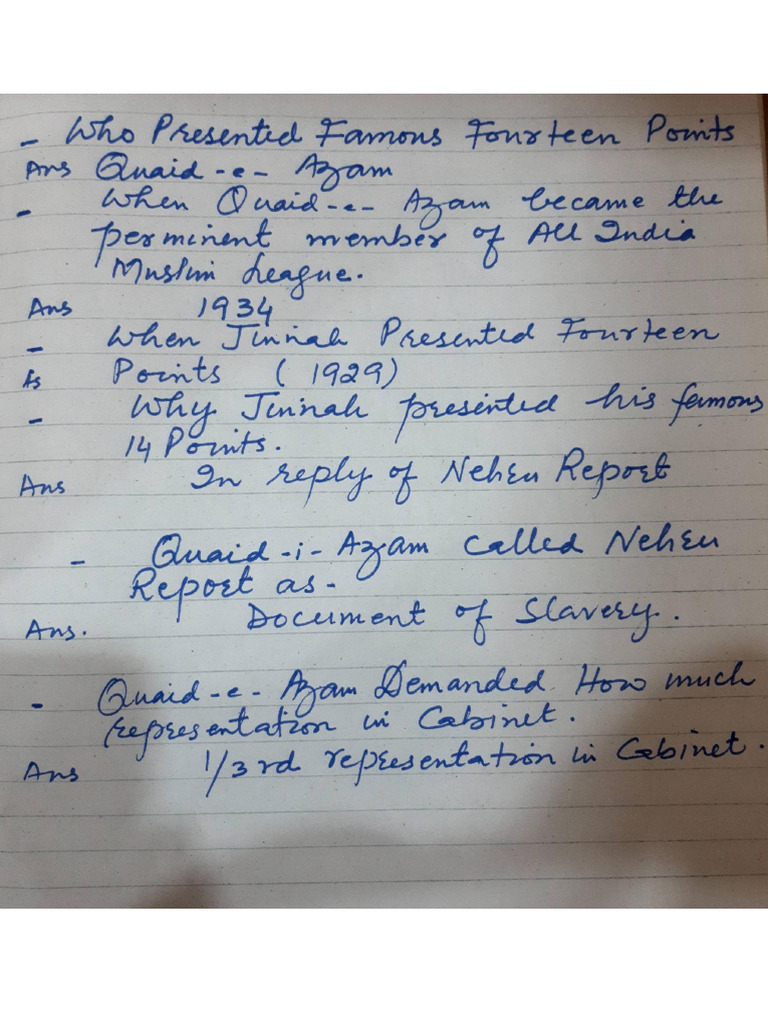 - Who Presented Famous Fourteen Points
Ans Quaid-e-Azam
- When Quaid-e-Azam became the
perminent member of All India
Muslim League.
Ans 1934
- When Jinnah Presented Fourteen
As Points (1929)
- Why Jinnah presented his famous
14 Points.
Ans In reply of Nehru Report
- Quaid-i-Azam called Nehru
Report as-
Ans. Document of Slavery.
- Quaid-e-Azam Demanded How much
representation in Cabinet.
Ans 1/3rd representation in Cabinet.